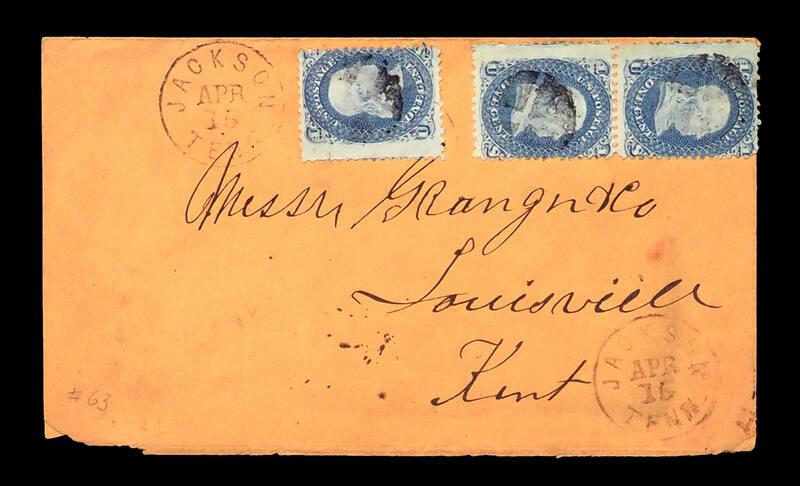 JACKSON
APR
15
TENN
U.S. POSTAGE
ONE CENT
U.S. POSTAGE
ONE CENT
U.S. POSTAGE
ONE CENT
Messrs
Louisville
Kent
JACKSON
APR
15
TENN.
# 63